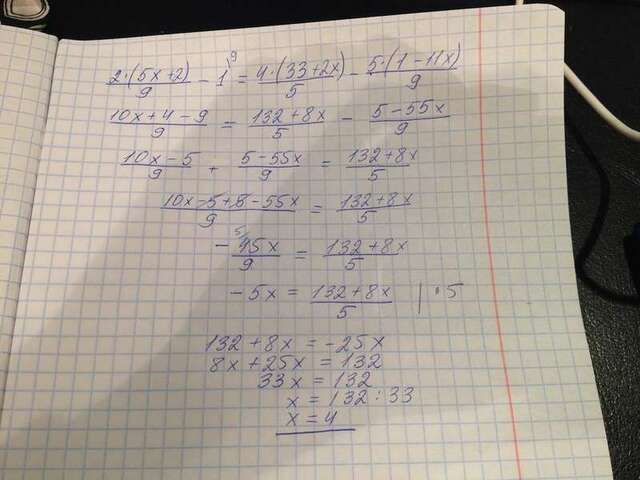 2·(5x+2)/9 - 1\9 = 4·(33+2x)/5 - 5·(1-11x)/9
10x+4-9/9 = 132+8x/5 - 5-55x/9
10x-5/9 + 5-55x/9 = 132+8x/5
10x-5+5-55x/9 = 132+8x/5
-45x/9 5 = 132+8x/5
-5x = 132+8x/5 |·5
132+8x = -25x
8x+25x = 132
33x = 132
x = 132:33
x = 4